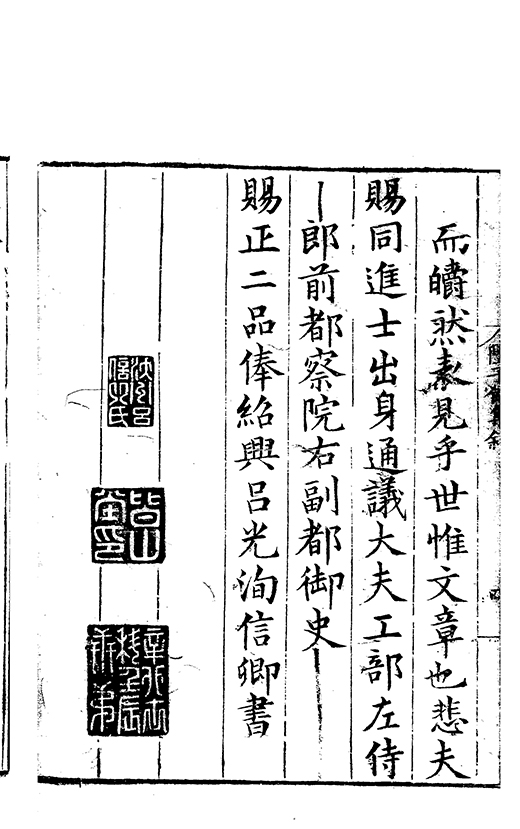 而皭然表見乎世惟文章也悲夫
賜同進士出身通議大夫工部左侍
郎前都察院右副都御史
賜正二品俸紹興呂光洵信卿書